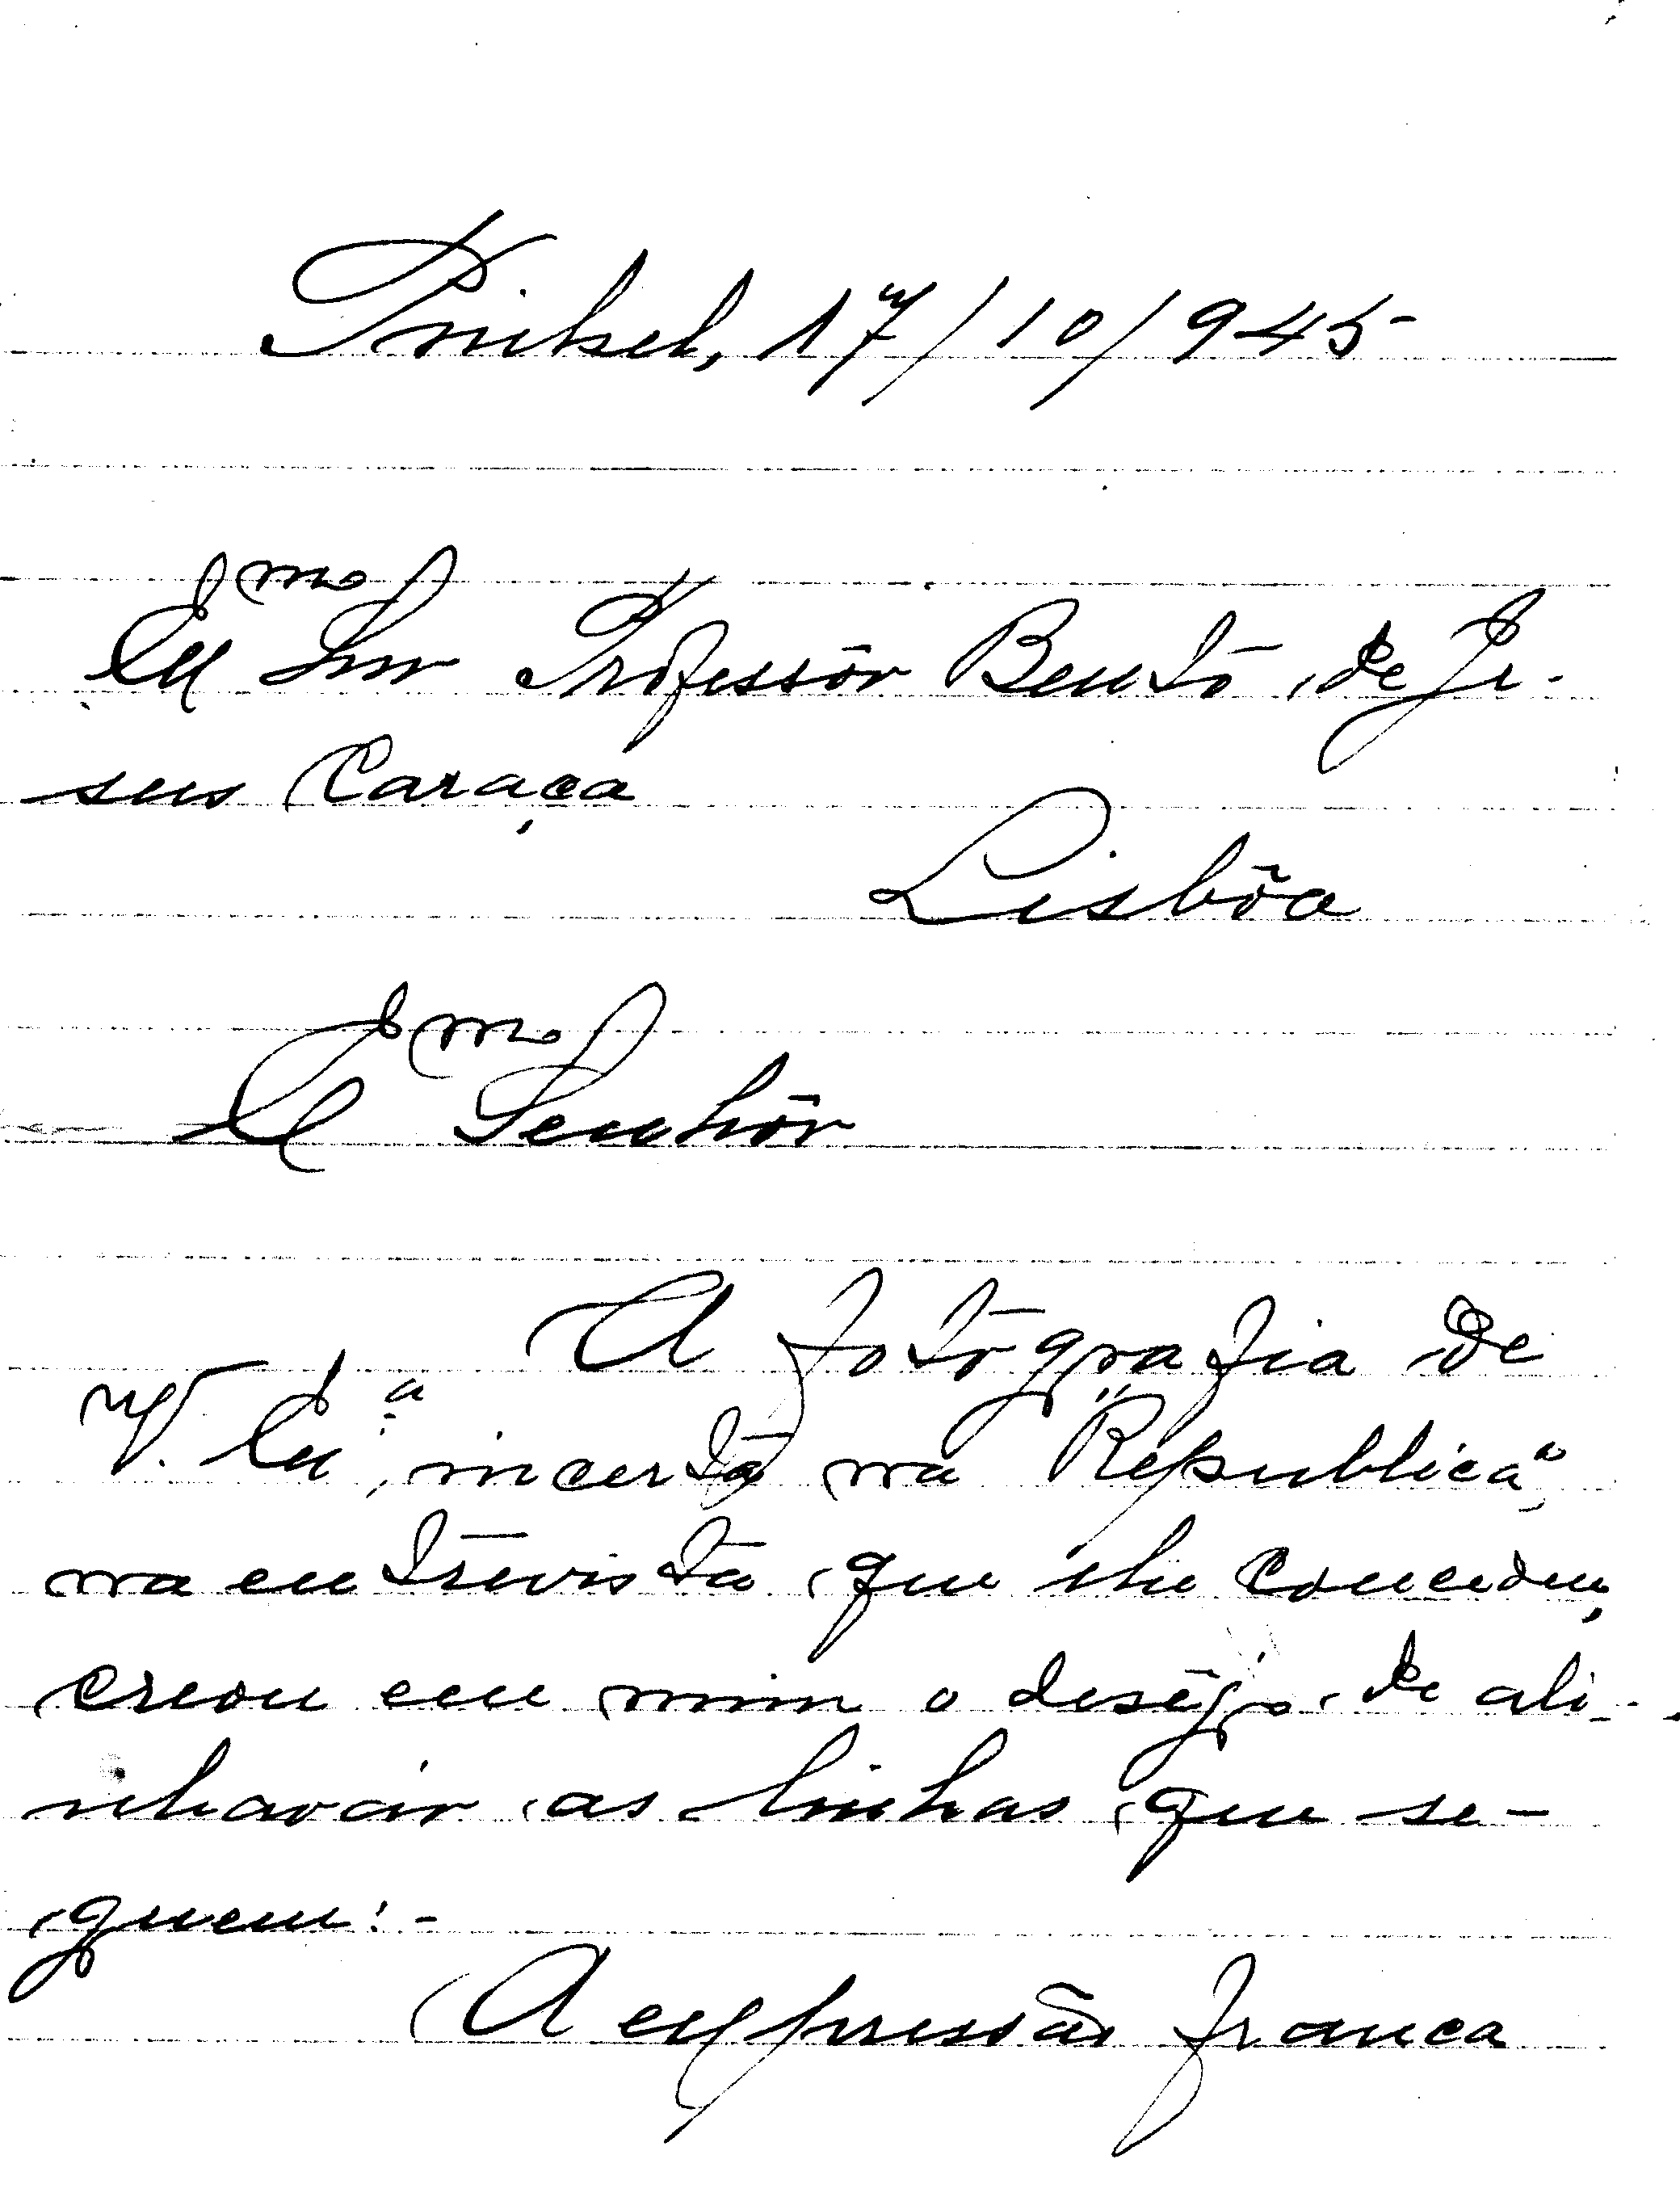 Pinhel, 17/10/945
Exmo Snr Professôr Bento de Je-
sus Caraça
Lisbôa
Exmo Senhôr
A fotografia de
V. Exª, incerta na "Republica",
na entrevista que lhe concedeu,
creou em mim o desêjo de ali-
nhavar as linhas que se-
guem:-
A expressão franca